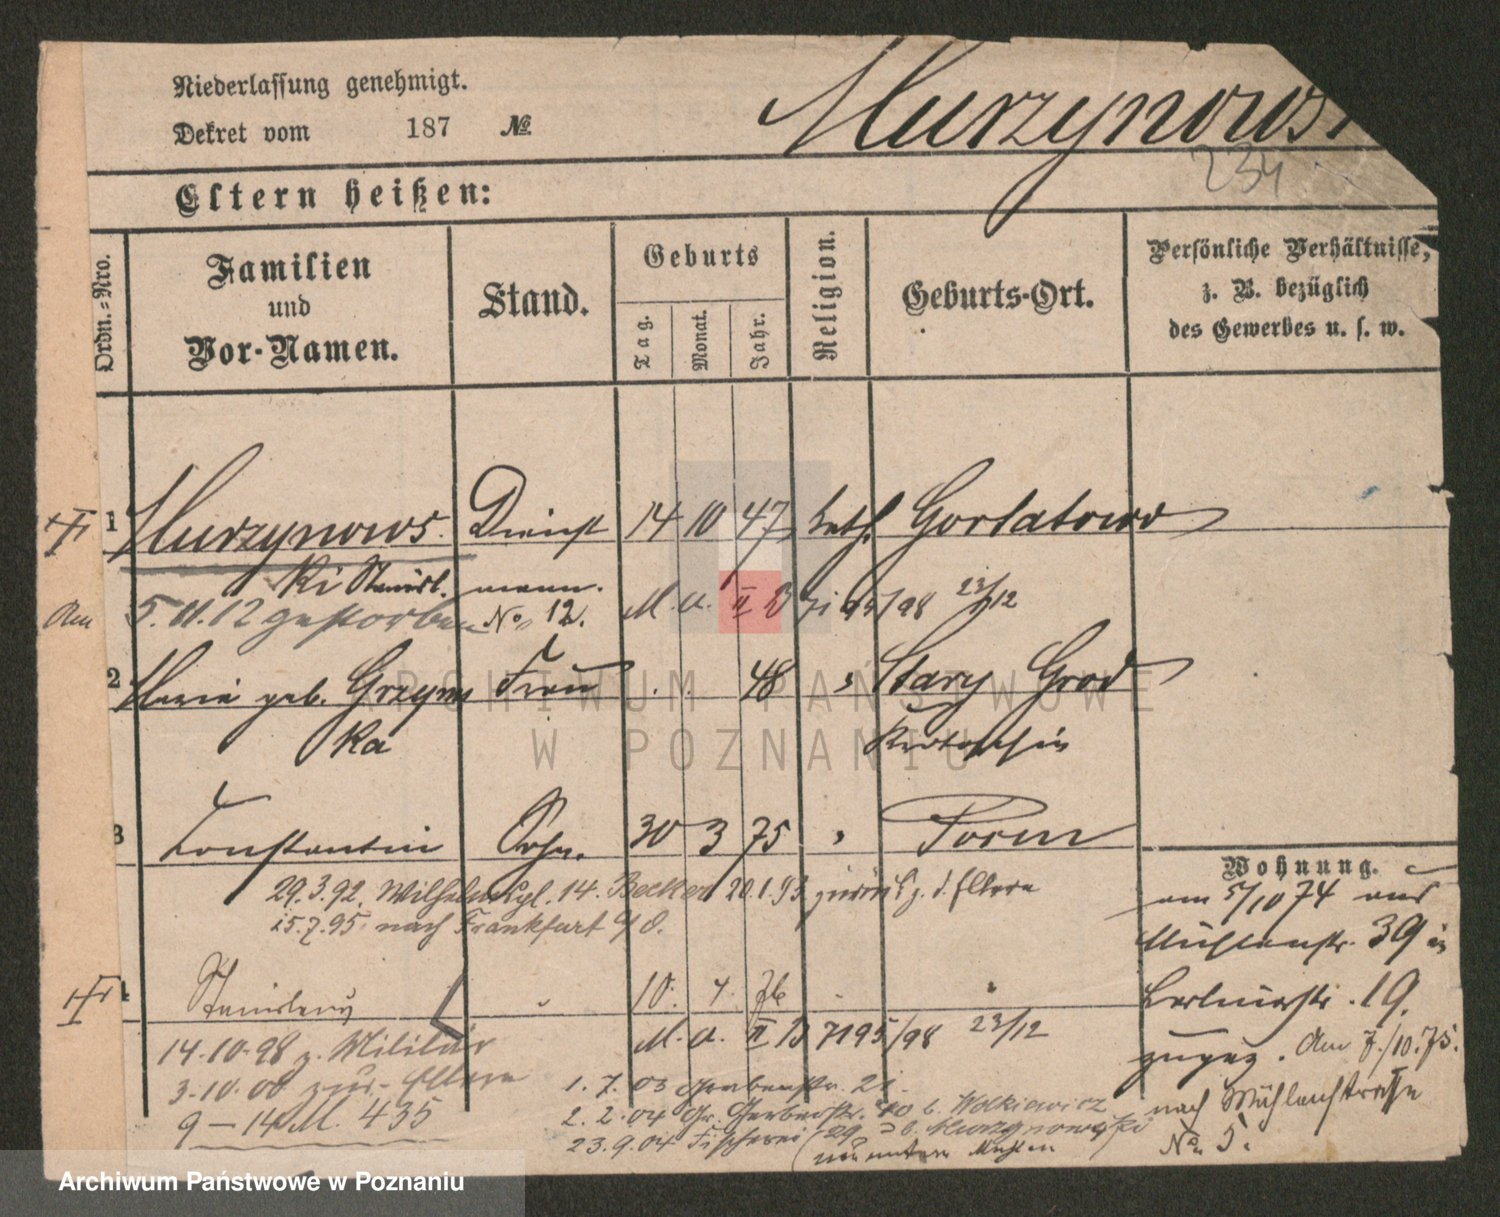 Niederlassung genehmigt.
Dekret vom 187 №
Murzynows
234
Eltern heißen:
Ordn.-Nro.
Familien
und
Vor-Namen.
Stand.
Geburts
Tag.
Monat.
Jahr.
Religion.
Geburts-Ort.
Persönliche Verhältnisse,
z. B. bezüglich
des Gewerbes u. s. w.
1 Murzynows. Dienst 14 10 47 kath. Gorlatowo
ki Stanisl. mann. No. 12.
M. a. II 95/98 23/12
5. 11. 12 gestorben
2 Maria geb. Grzyms Frau 48 " Stary Grod
ka Krotoschin
3 Constantin Sohn. 30 3 75 " Posen
29.3.92. 14. Becker 20.1.93 zurück z. d. Eltern
15.7.95. nach Frankfurt a/O.
4 Stanislaus " 10. 4. 76 " "
M. a. II B 7195/98 23/12
14.10.98 z. Militär
3.10.00 zur. Eltern
9 – 14 M. 435
1. 7. 03 Gerberstr. 21.
2. 2. 04 Gr. Gerberstr. 40 b. Wolkiewicz
23.9.04 Fischerei 29 b. Murzynowski
Wohnung.
am 5/10 74 aus
Mühlenstr. 39 in
Berlinerstr. 19.
zugez. Am 7./10.75.
nach Mühlenstrasse
No. 5.
ARCHIWUM PAŃSTWOWE
W POZNANIU
Archiwum Państwowe w Poznaniu